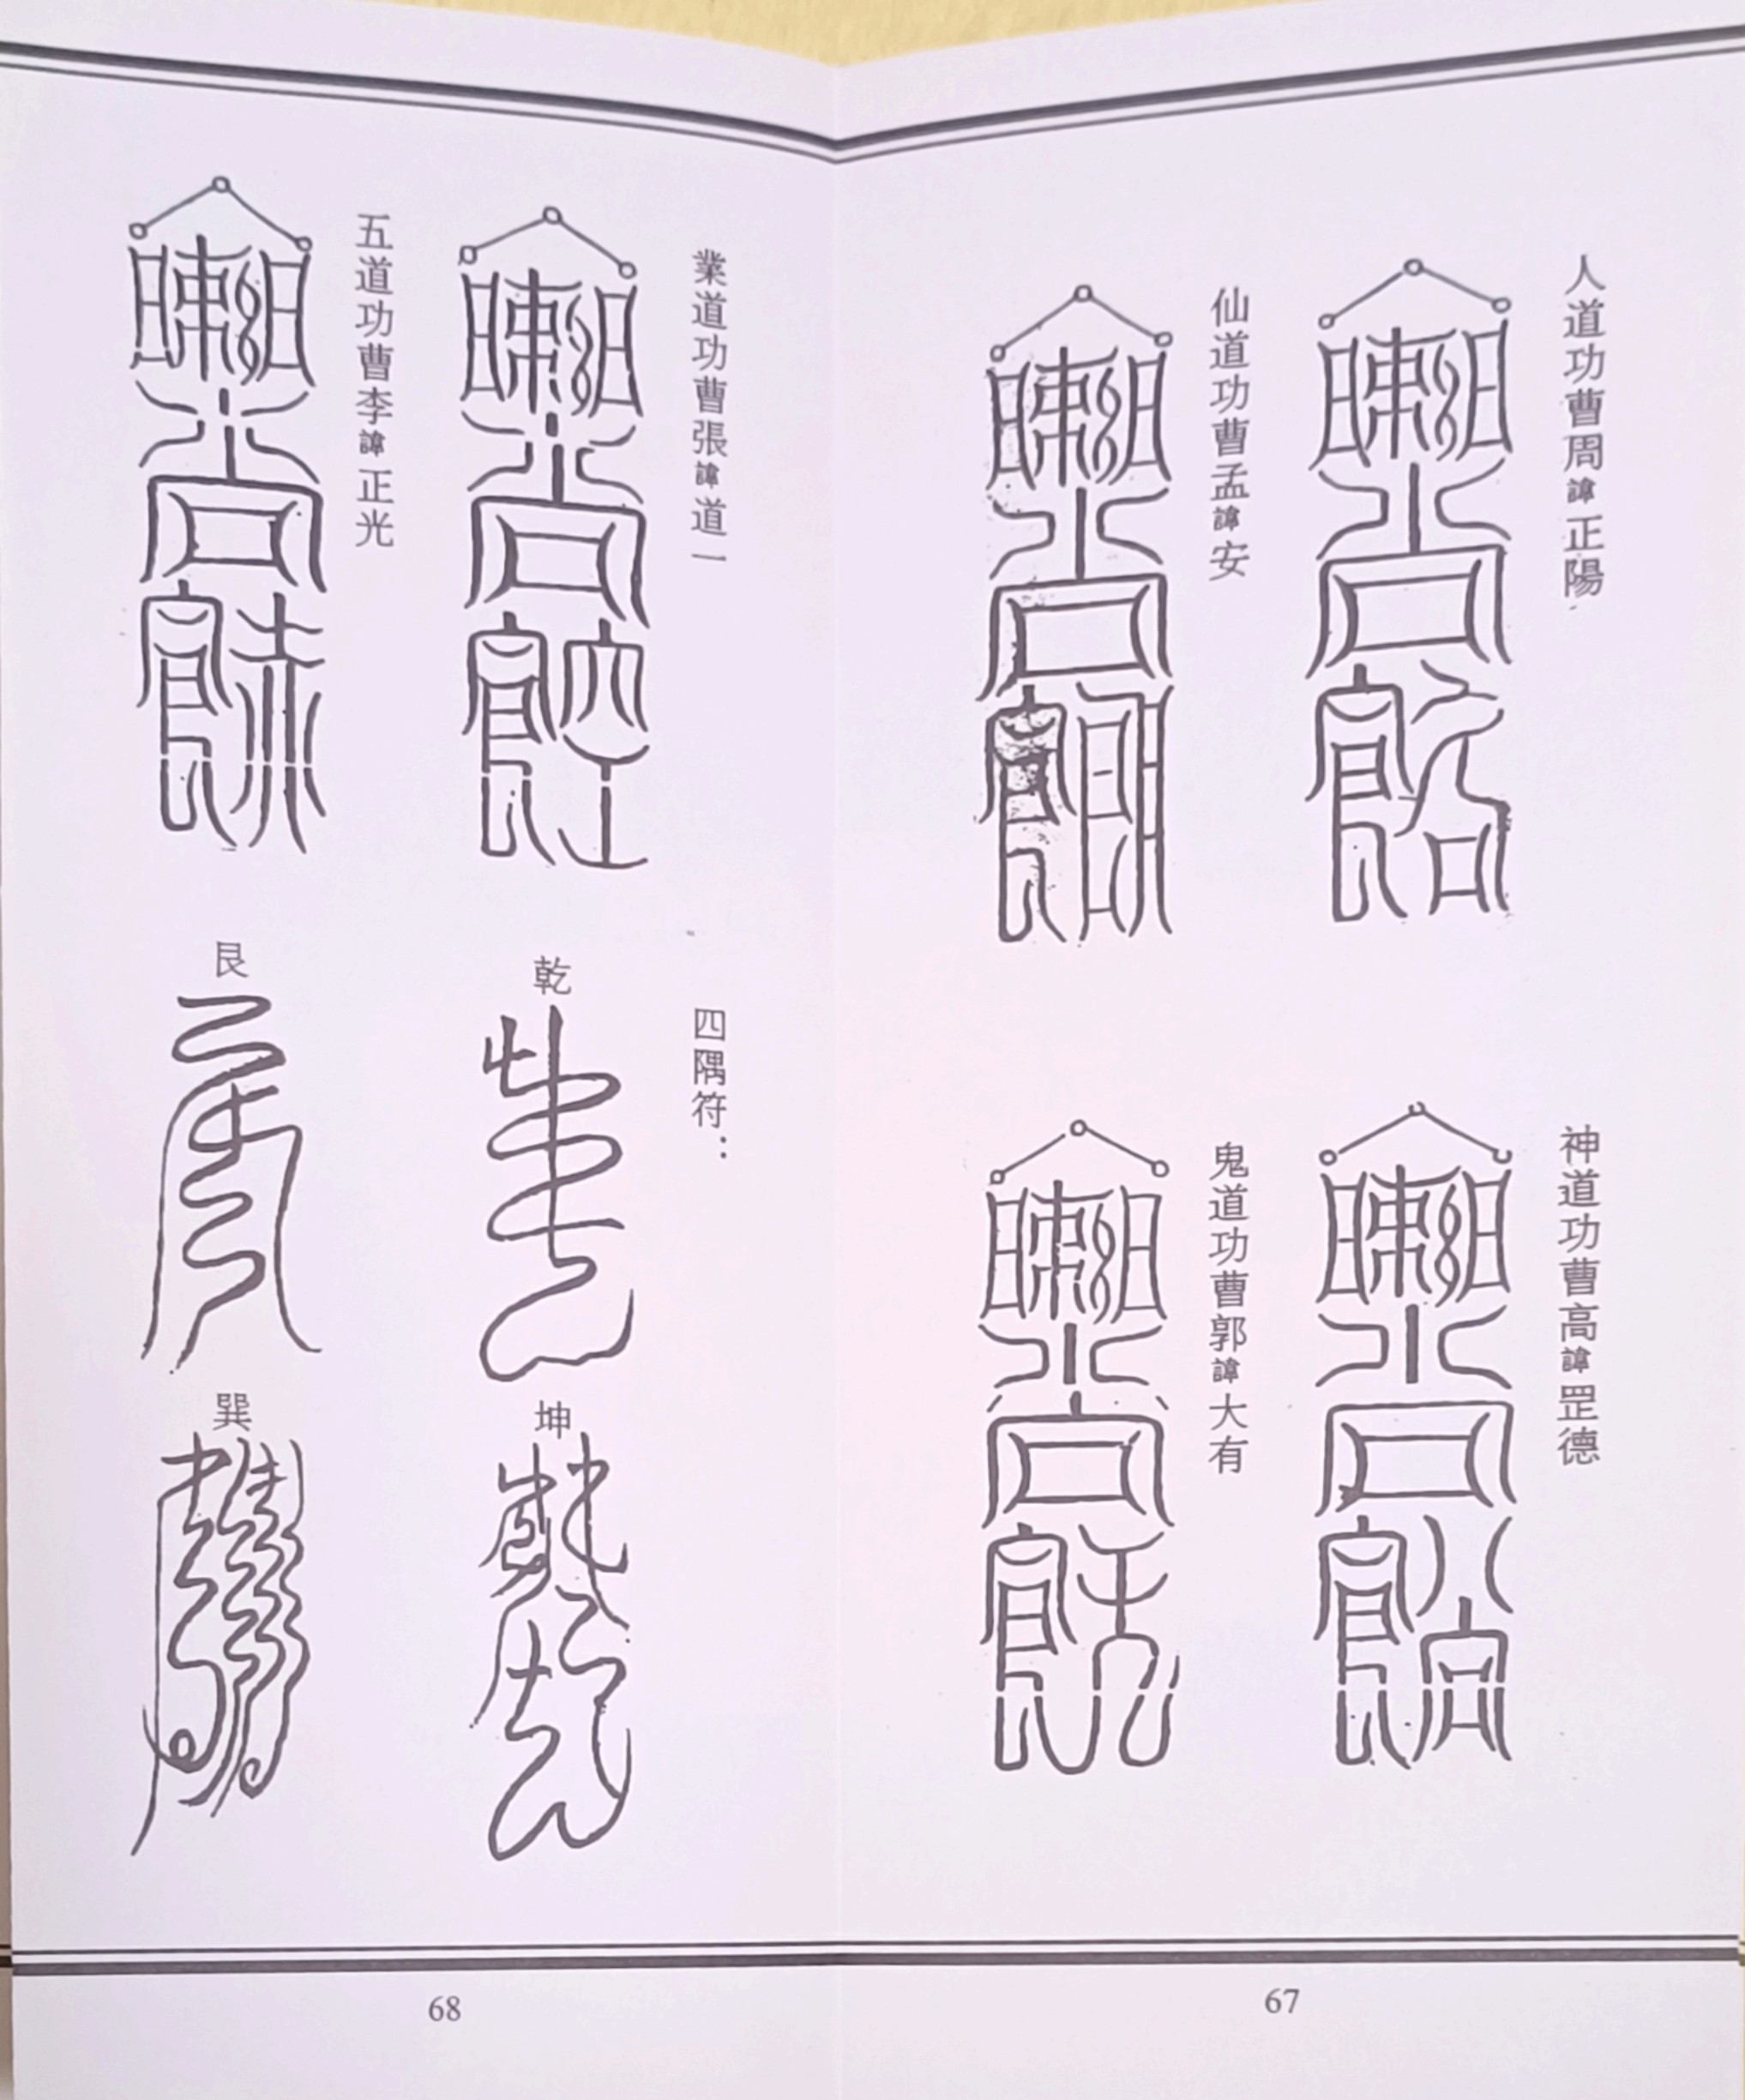 人道功曹周諱正陽
神道功曹高諱罡德
仙道功曹孟諱安
鬼道功曹郭諱大有
67
業道功曹張諱道一
四隅符：
乾
坤
五道功曹李諱正光
艮
巽
68